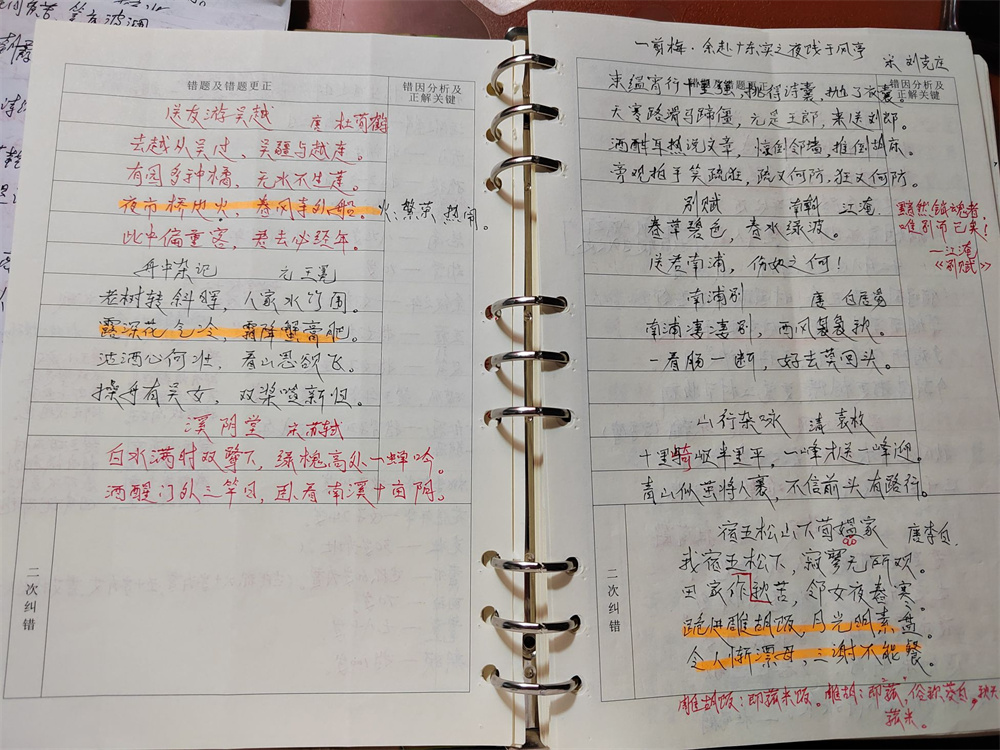 错题及错题更正
错因分析及
正解关键
送友游吴越 唐 杜荀鹤
去越从吴过，吴疆与越连。
有园多种橘，无水不生莲。
夜市桥边火，春风寺外船。
火：繁荣、热闹。
此中偏重客，君去必经年。
舟中杂记 元 王冕
老树转斜晖，人家水竹围。
露深花气冷，霜降蟹膏肥。
沽酒心何壮，看山思欲飞。
操舟有吴女，双桨唱新归。
溪阴堂 宋 苏轼
白水满时双鹭下，绿槐高处一蝉吟。
酒醒门外三竿日，卧看南溪十亩阴。
二次纠错
一剪梅·余赴广东实之夜饯于风亭
宋 刘克庄
错题及错题更正
错因分析及
正解关键
束缊宵行十里强，挑得诗囊，抛了衣囊。
天寒路滑马蹄僵，元是王郎，来送刘郎。
酒酣耳热说文章，惊倒邻墙，推倒胡床。
旁观拍手笑疏狂，疏又何防，狂又何防。
别赋 南朝 江淹
春草碧色，春水绿波。
送君南浦，伤如之何！
黯然销魂者，
唯别而已矣！
—江淹
《别赋》
南浦别 唐 白居易
南浦凄凄别，西风袅袅秋。
一看肠一断，好去莫回头。
山行杂咏 清 袁枚
十里崎岖半里平，一峰才送一峰迎。
青山似茧将人裹，不信前头有路行。
宿五松山下荀媪家 唐 李白
我宿五松下，寂寥无所欢。
田家作秋苦，邻女夜舂寒。
跪进雕胡饭，月光明素盘。
令人惭漂母，三谢不能餐。
二次纠错
雕胡饭：即菰米饭。雕胡：即菰，俗称茭白，秋天
菰米。